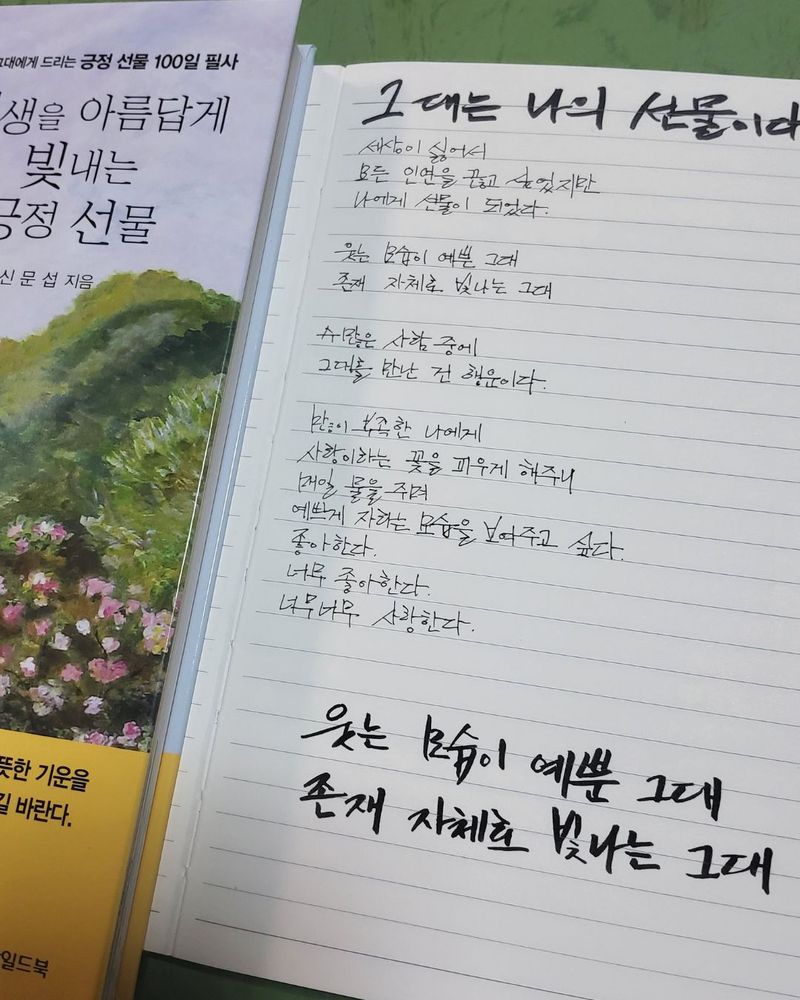 그대에게 드리는 긍정 선물 100일 필사
생을 아름답게
빛내는
긍정 선물
신문섭 지음
뜻한 기운을
길 바란다.
일드북
그대는 나의 선물이다
세상이 싫어서
모든 인연을 끊고 싶었지만
나에게 선물이 되었다.
웃는 모습이 예쁜 그대
존재 자체로 빛나는 그대
수많은 사람 중에
그대를 만난 건 행운이다.
많이 부족한 나에게
사랑이라는 꽃을 피우게 해주니
매일 물을 주며
예쁘게 자라는 모습을 보여주고 싶다.
좋아한다.
너무 좋아한다.
너무너무 사랑한다.
웃는 모습이 예쁜 그대
존재 자체로 빛나는 그대